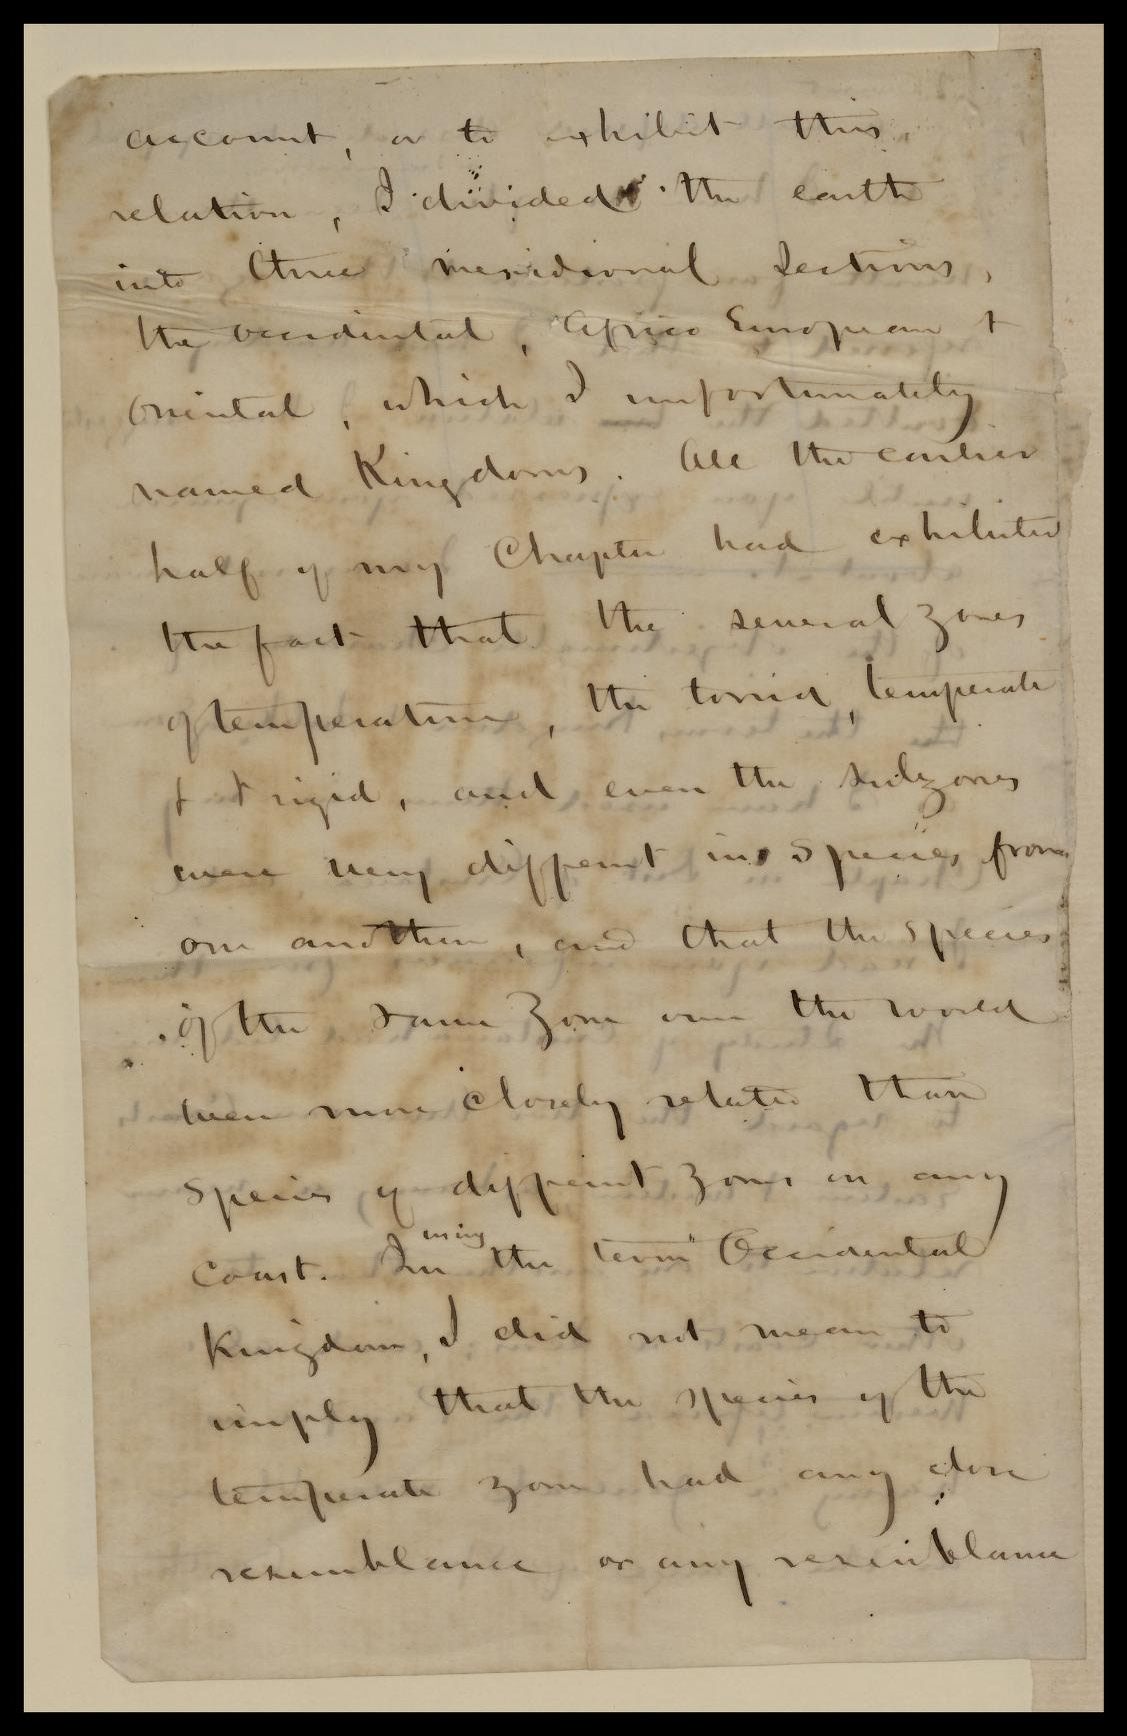 account, or to exhibit this
relation, I divided the earth
into three meridional sections,
the occidental, Africo European &
oriental, which I unfortunately
named Kingdoms. All the earlier
half of my Chapter had exhibited
the fact that the several zones
of temperature, the torrid, temperate
& frigid, and even the subzones
were very different in species from
one another, and that the species
of the same zone over the world
were more closely related than
species of different zones on any
coast. In using the term "Occidental
Kingdom, I did not mean to
imply that the species of the
temperate zone had any close
resemblance or any resemblance